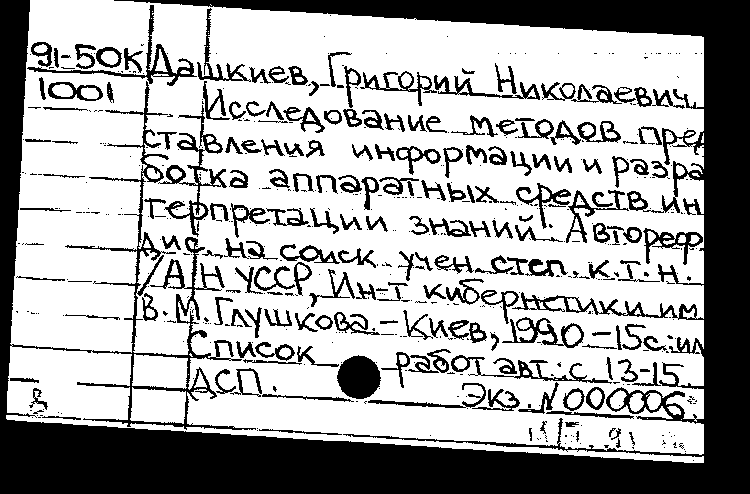 91-50К Дашкиев, Григорий Николаевич.
1001 Исследование методов пред
ставления информации и разра
ботка аппаратных средств ин
терпретации знаний: Автореф.
дис. на соиск. учен. степ. к.т.н.
/АН УССР, Ин-т кибернетики им
В.М.Глушкова.-Киев, 1990-15с.:ил
Список работ авт.: с. 13-15.
ДСП. Экз. N000006.